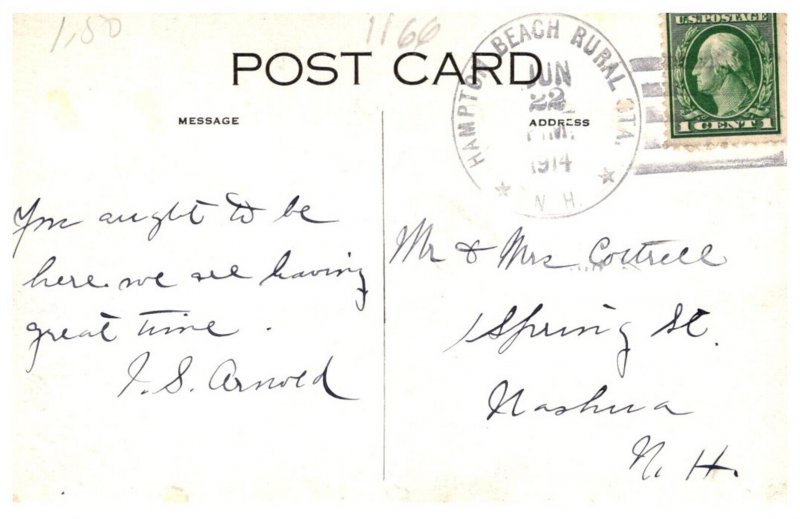 1,50
1166
POST CARD
HAMPTON BEACH RURAL STA.
JUN
22
P.M.
1914
N.H.
U.S. POSTAGE
1 CENT 1
MESSAGE
ADDRESS
You aught to be
here we are having
great time.
J. S. Arnold
Mr & Mrs Cottrell
Spring St.
Nashua
N. H.